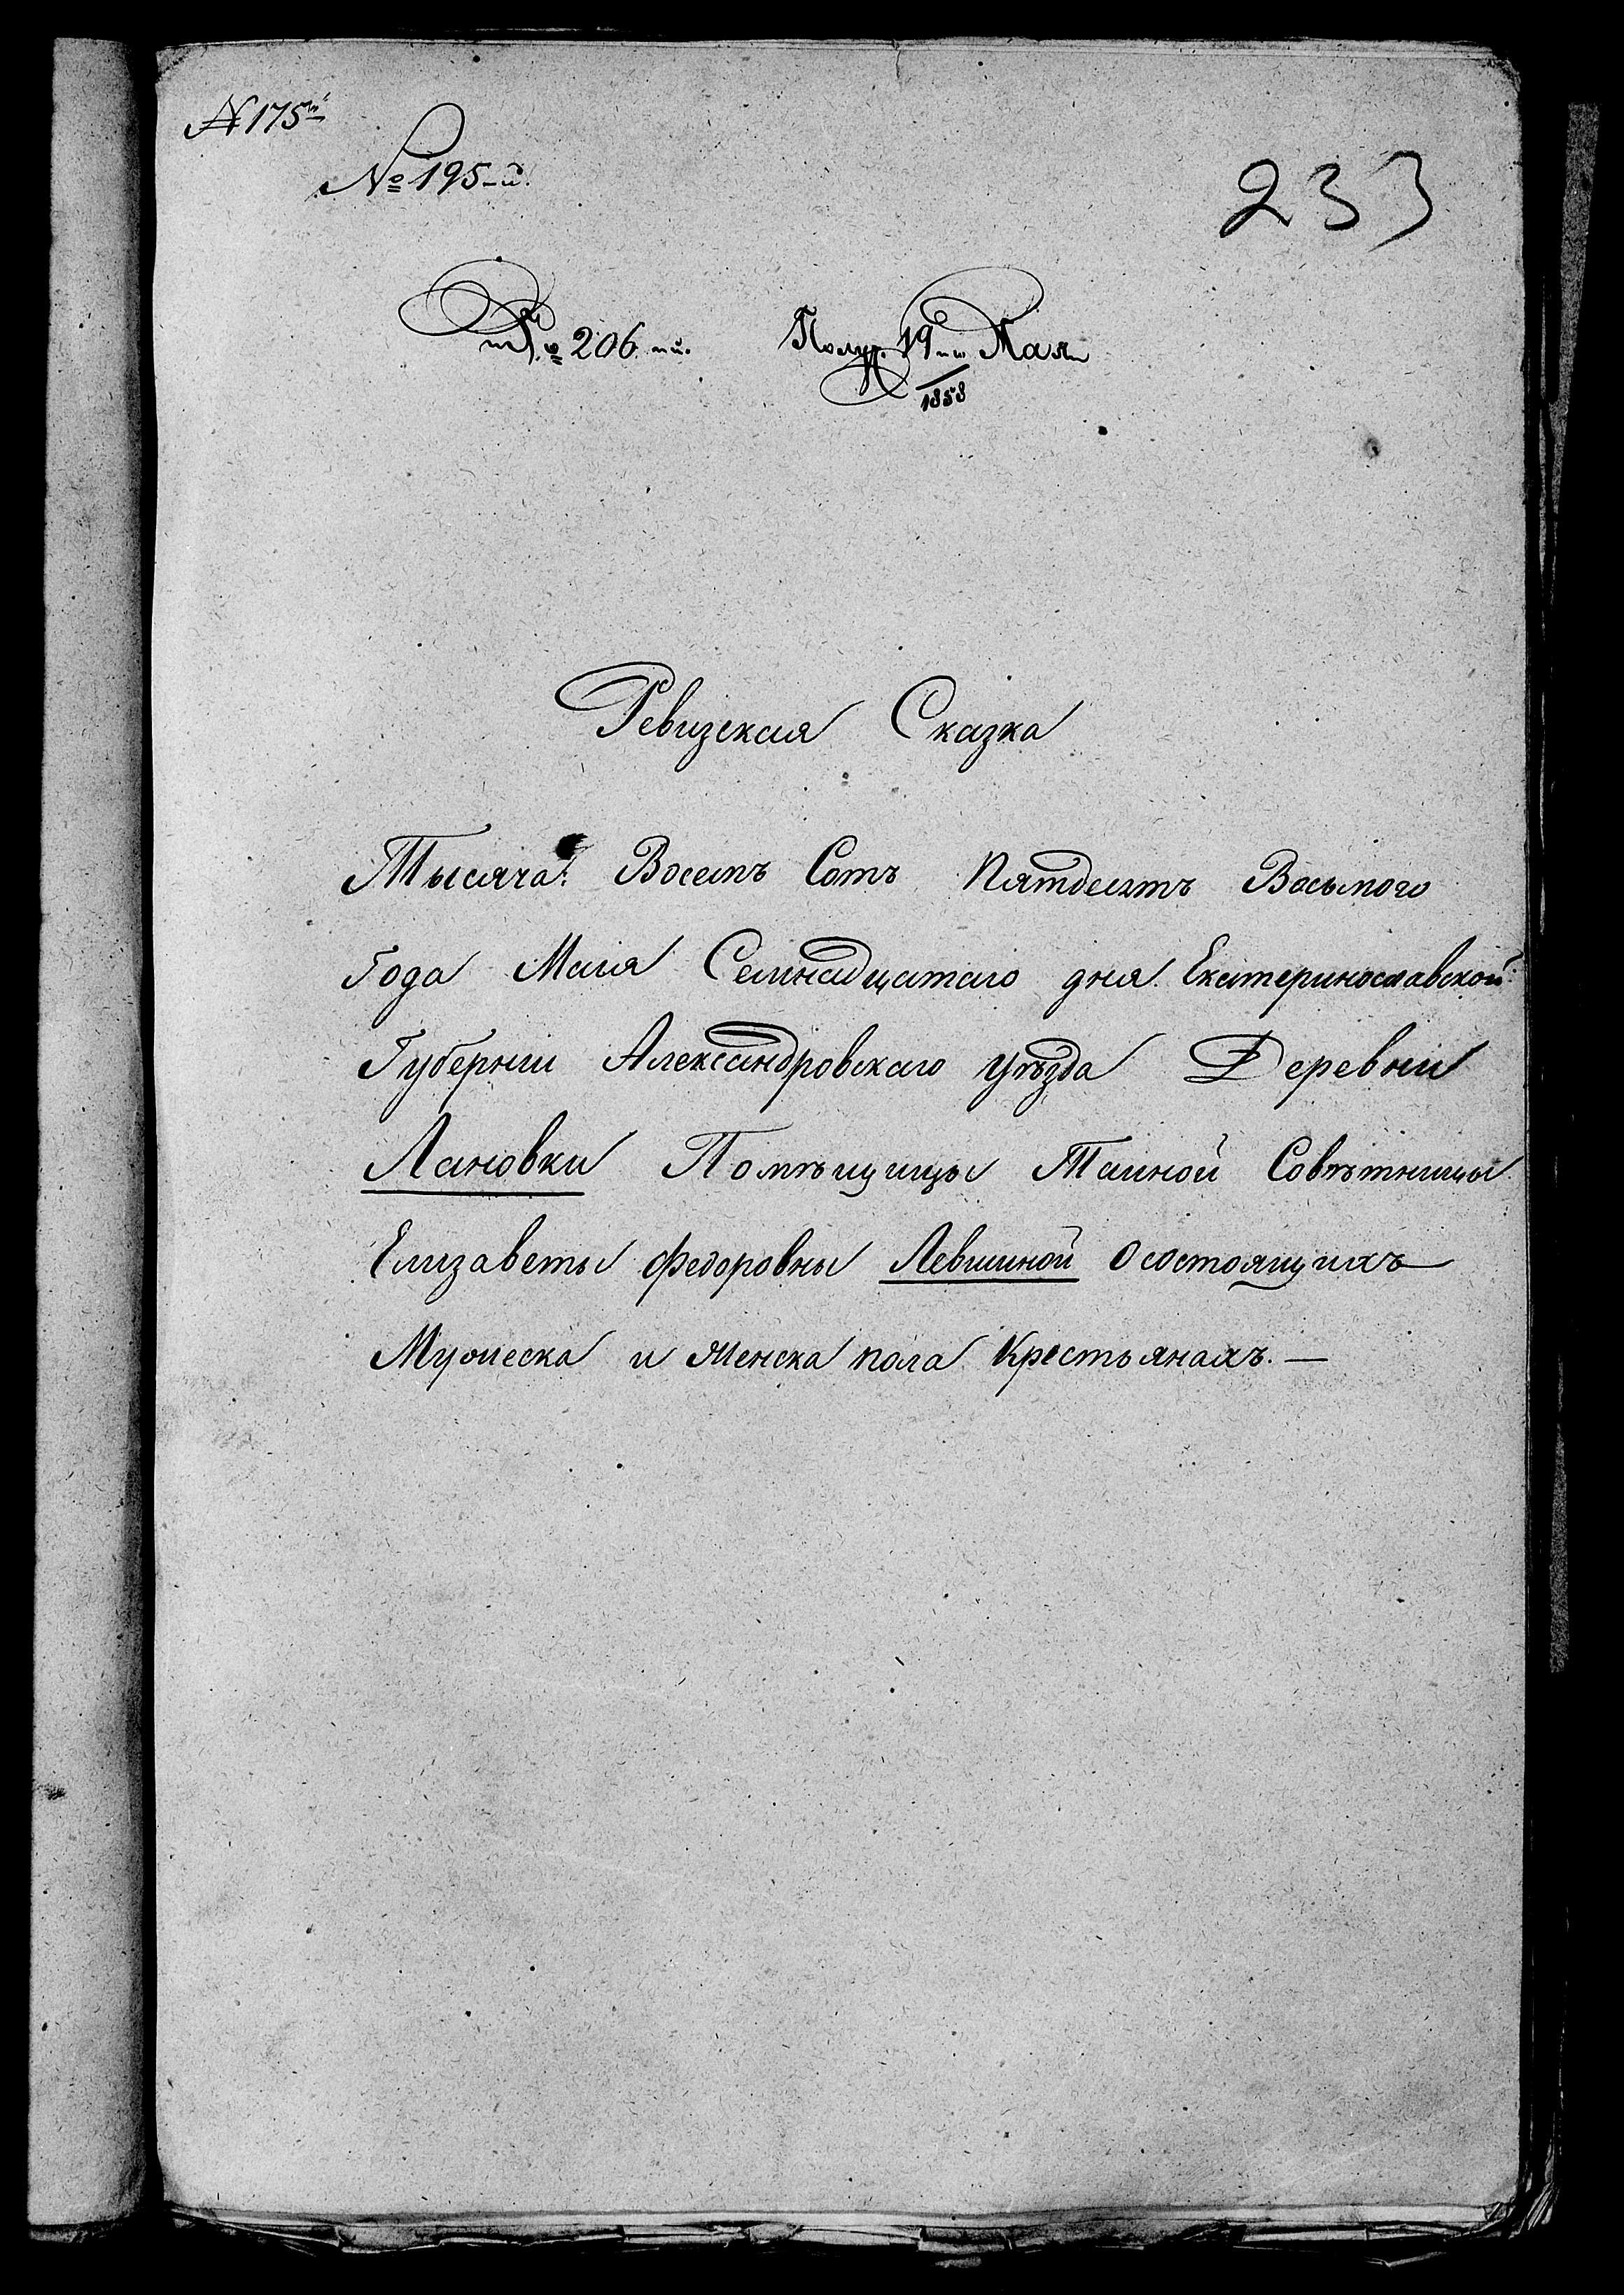 № 175й
№ 195-й.
233
№ 206-й. Получ. 19го Мая
1858
Ревизская Сказка
Тысяча Восемъ Сотъ Пятдесятъ Восьмого
Года Мая Семнадцатаго дня Екатеринославской
Губернии Александровскаго уѣзда Деревни
Лановки Помѣщицы Тайной Совѣтницы
Елизаветы Федоровны Левшиной О состоящихъ
Мужеска и женска пола Крестьянахъ. —